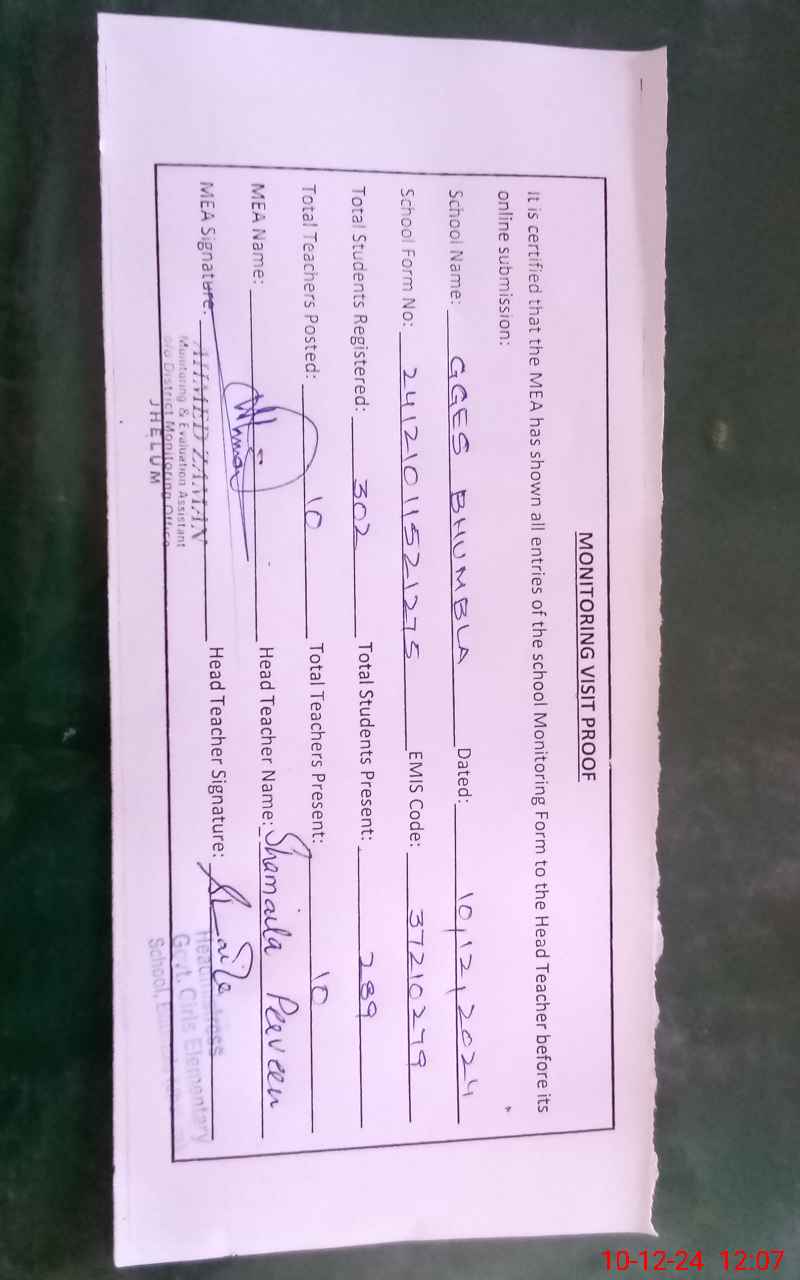 MONITORING VISIT PROOF
It is certified that the MEA has shown all entries of the school Monitoring Form to the Head Teacher before its
online submission:
School Name: GGES BHUMBLA Dated: 10,12,2024
School Form No: 24121011521275 EMIS Code: 37210279
Total Students Registered: 302 Total Students Present: 289
Total Teachers Posted: 10 Total Teachers Present: 10
MEA Name: Head Teacher Name: Shamaila Perveen
MEA Signature: Head Teacher Signature:
AHMED ZAMAN
Monitoring & Evaluation Assistant
o/o District Monitoring Office
JHELUM
Headmistress
Govt. Girls Elementary
School,
10-12-24 12:07